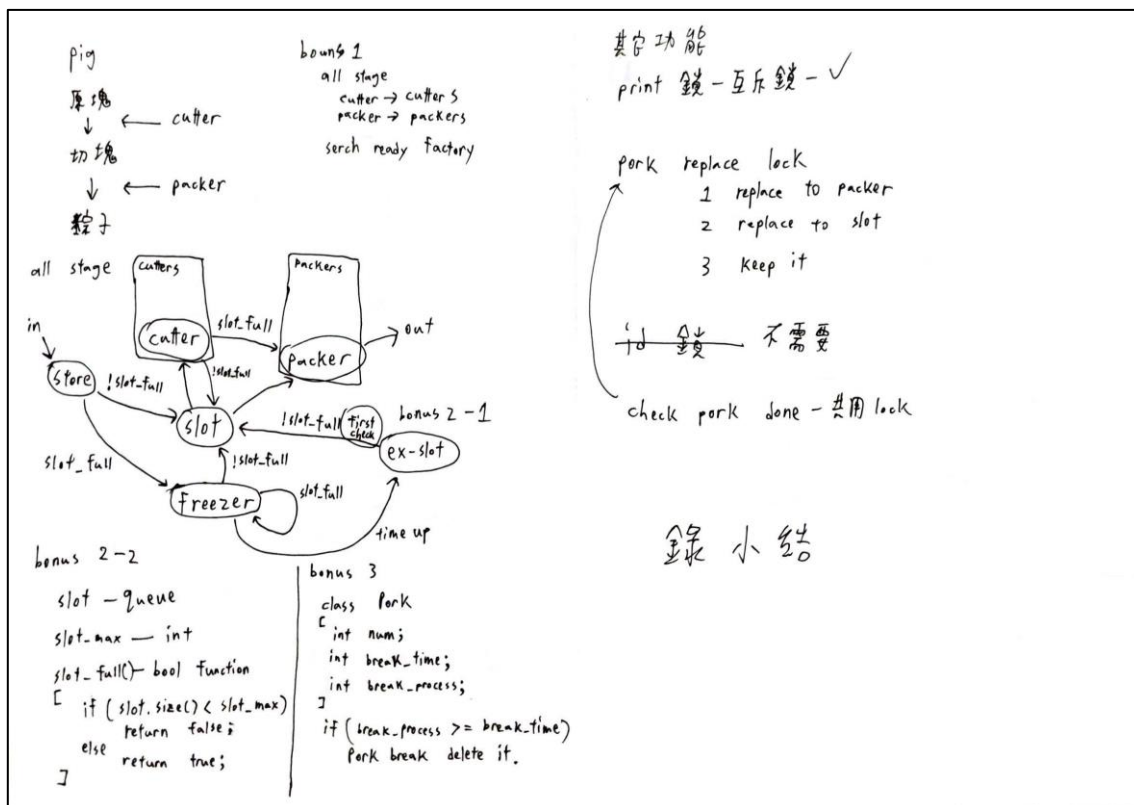 pig
原塊
← cutter
切塊
← packer
粽子
bouns 1
all stage
cutter → cutters
packer → packers
serch ready factory
all stage
cutters
packers
cutter
slot_full
packer
out
in
store
!slot_full
!slot_full
slot
!slot_full
first check
bonus 2-1
ex-slot
slot_full
!slot_full
freezer
slot_full
time up
bonus 2-2
slot — queue
slot_max — int
slot_full() — bool function
[
if (slot.size() < slot_max)
return false;
else
return true;
]
bonus 3
class Pork
[
int num;
int break_time;
int break_process;
]
if (break_process >= break_time)
Pork break delete it.
其它功能
print 鎖 - 互斥鎖 - ✓
pork replace lock
1 replace to packer
2 replace to slot
3 keep it
id 鎖 不需要
check pork done - 共用 lock
錄小結